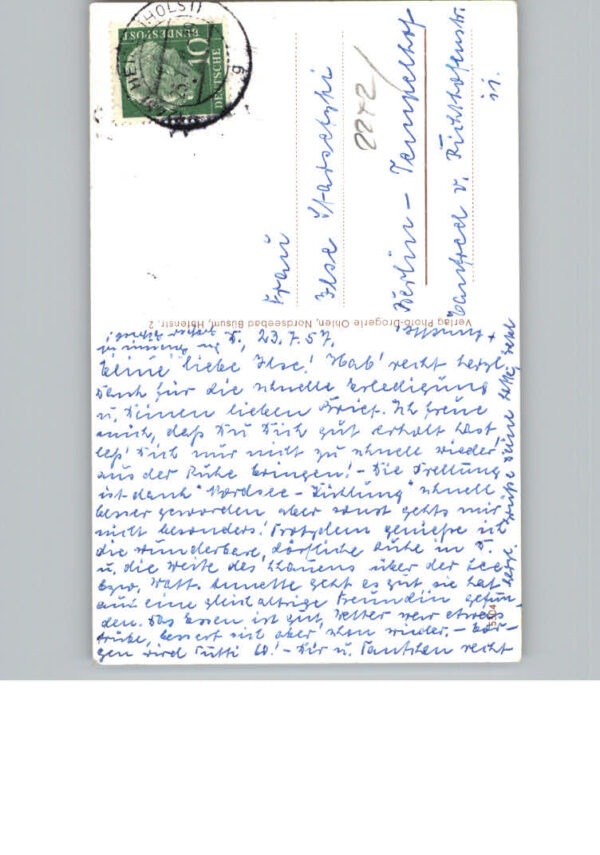 (HOLST)
DEUTSCHE
BUNDESPOST
10
2242
Frau
Ilse
Berlin - Tempelhof
Manfred v. Richthofenstr.
Verlag Photo-Drogerie Ohlen, Nordseebad Büsum, Hafenstr. 2
5504
23.7.57.
Meine liebe Ilse! Hab' recht herzl.
Dank für die schnelle Erledigung
u. Deinen lieben Brief. Ich freue
mich, daß Du Dich gut erholt hast
laß' Dich nur nicht zu schnell wieder
aus der Ruhe bringen! - Die Prellung
ist dank "Nordsee-Kühlung" schnell
besser geworden aber sonst gehts mir
nicht besonders! Trotzdem genieße ich
die wunderbare, dörfliche Ruhe in
u. die Weite des Schauens über der See
bzw. Watt. Annette geht es gut sie hat
auch eine gleichaltrige Freundin gefun-
den. Das Essen ist gut, Wetter war etwas
trübe, bessert sich aber schon wieder. - Mor-
gen wird Putti 60! - Dir u. Tantchen recht
herzl. Grüße Deine